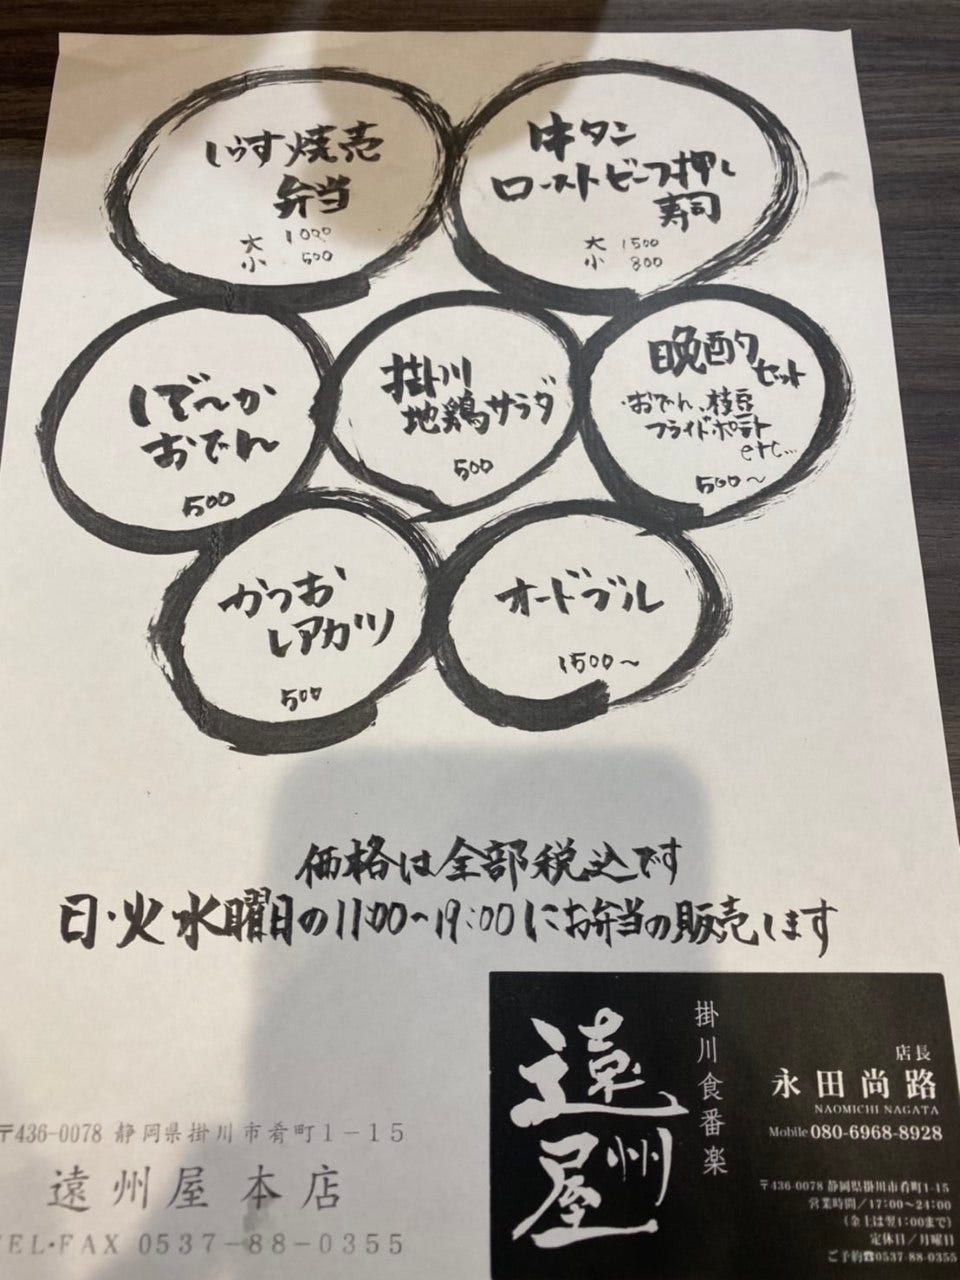 しらす焼売
弁当
大 1000
小 500
牛タン
ローストビーフ押し
寿司
大 1500
小 800
しぞ～か
おでん
500
掛川
地鶏サラダ
500
晩酌セット
・おでん、枝豆
フライドポテト
etc...
500～
かつお
レアカツ
500
オードブル
1500～
価格は全部税込です
日・火水曜日の11:00～19:00にお弁当の販売します
〒436-0078 静岡県掛川市肴町1-15
遠州屋本店
TEL・FAX 0537-88-0355
遠州屋
掛川食番楽
店長
永田尚路
NAOMICHI NAGATA
Mobile 080-6968-8928
〒436-0078 静岡県掛川市肴町1-15
営業時間/17:00~24:00
(金土は翌1:00まで)
定休日/月曜日
ご予約☎0537-88-0355